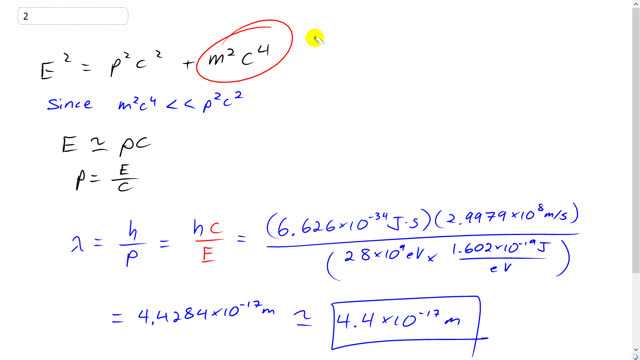 2
E² = p²c² + m²c⁴
Since m²c⁴ << p²c²
E ≃ pc
p = E/c
λ = h/p = hc/E = (6.626×10⁻³⁴ J·s)(2.9979×10⁸ m/s) / (28×10⁹ eV × 1.602×10⁻¹⁹ J/eV)
= 4.4284×10⁻¹⁷ m ≃ 4.4×10⁻¹⁷ m